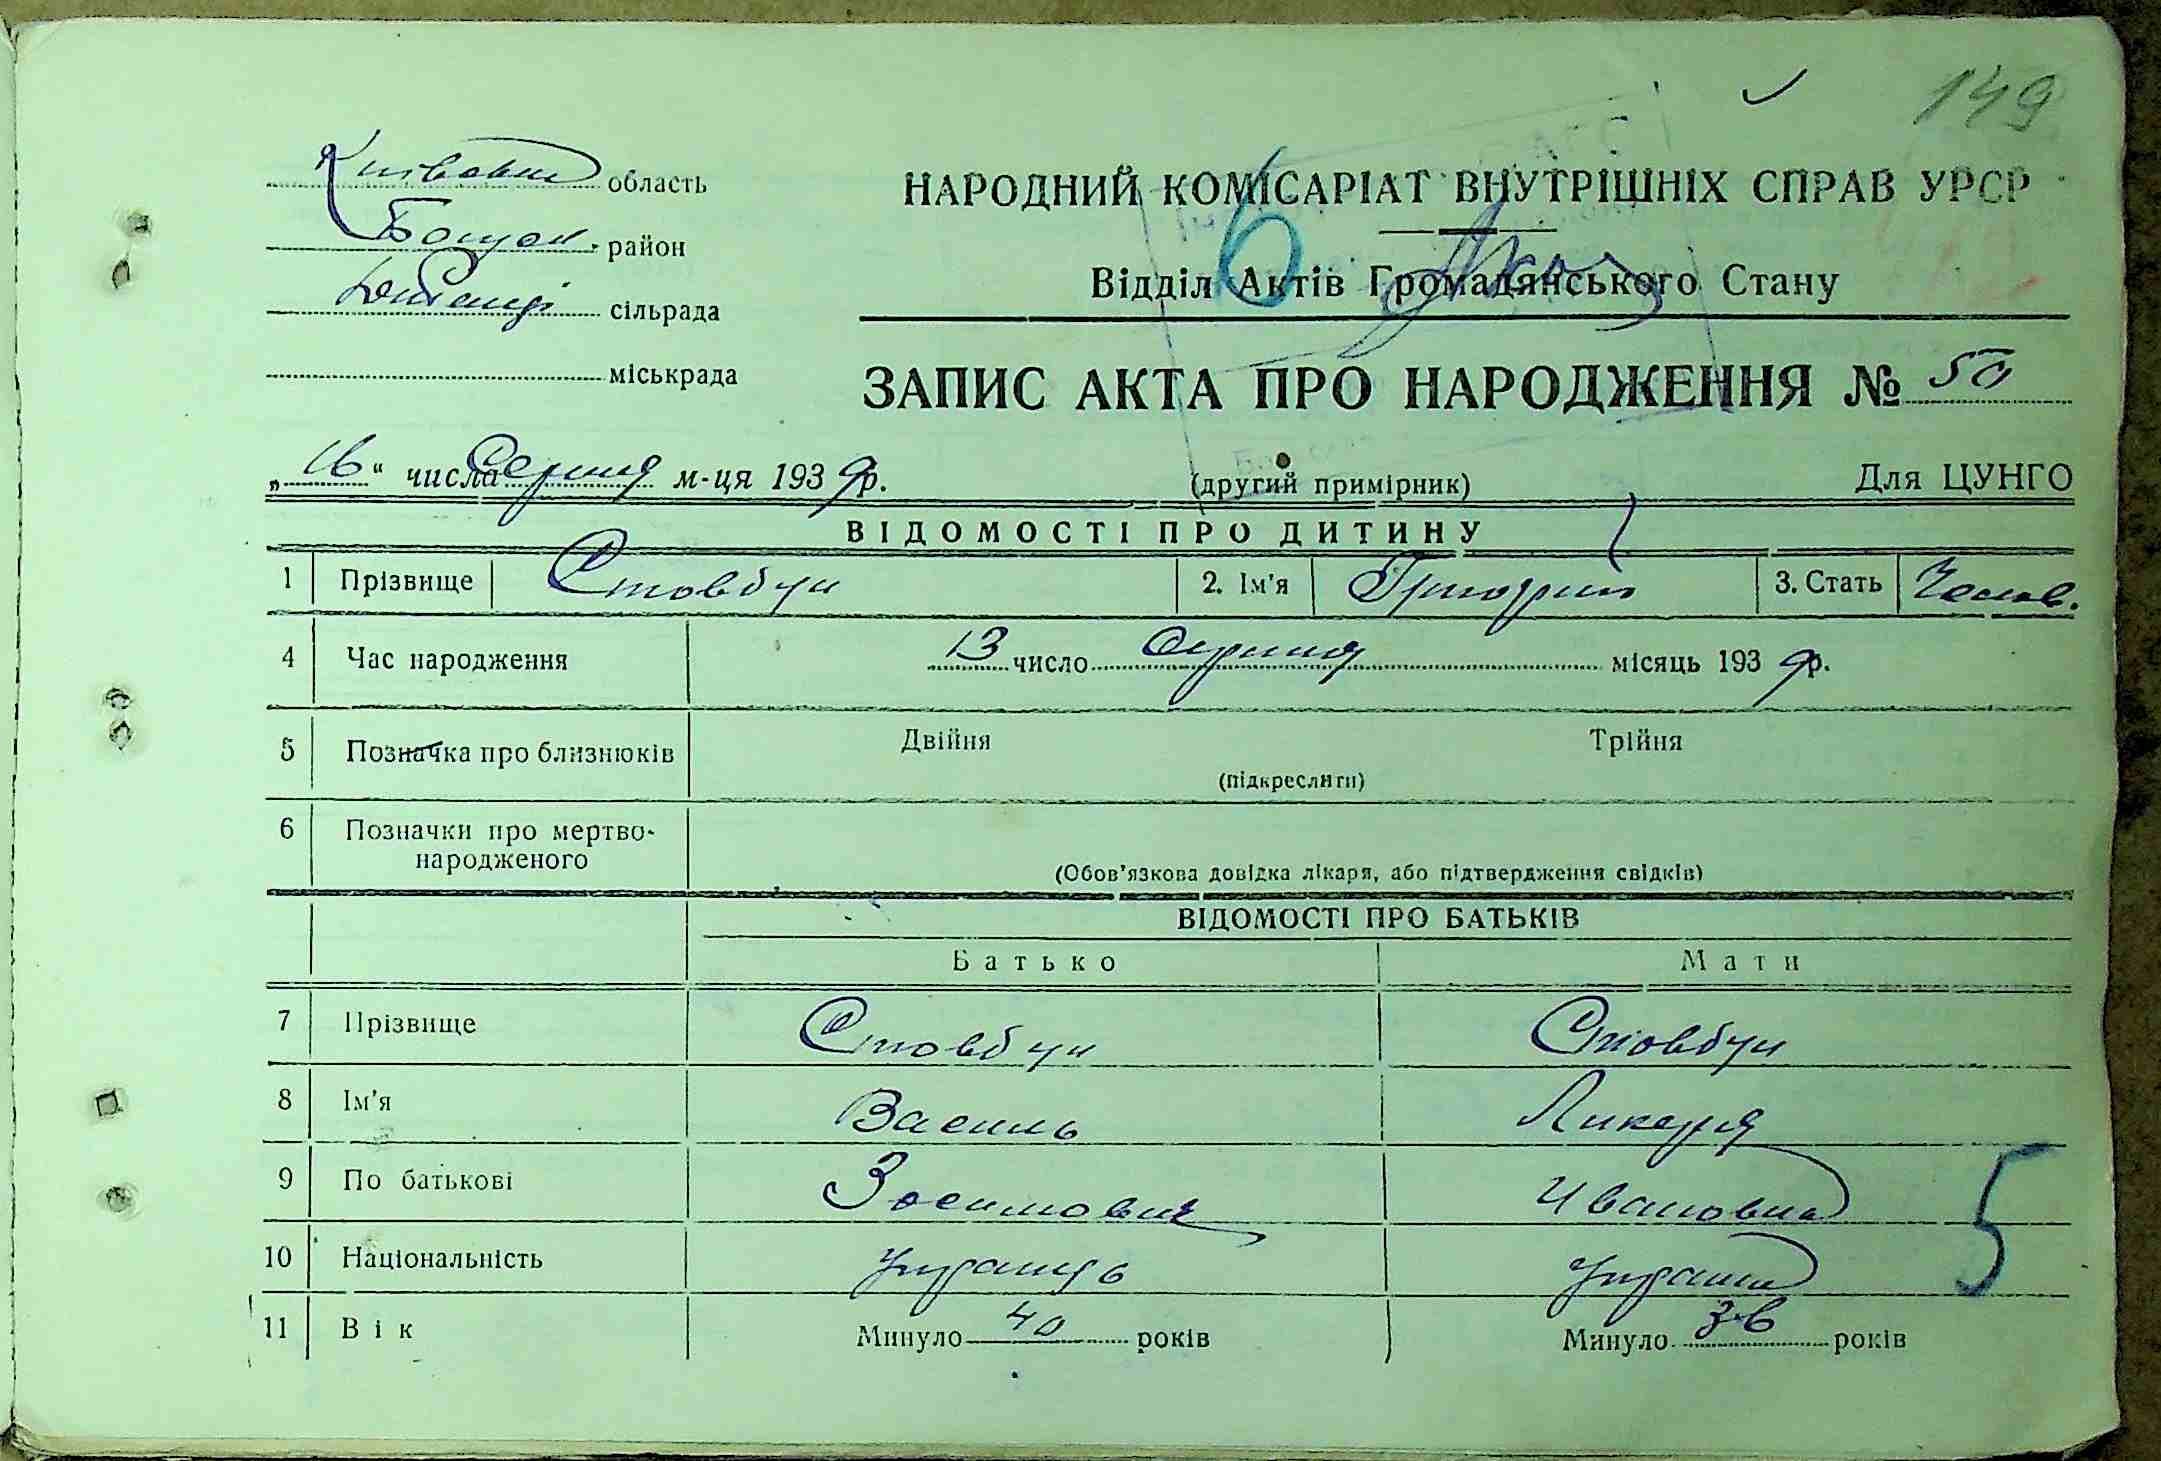 149
Київська область
НАРОДНИЙ КОМІСАРІАТ ВНУТРІШНІХ СПРАВ УРСР
Богусл. район
6
Відділ Актів Громадянського Стану
сільрада
міськрада
ЗАПИС АКТА ПРО НАРОДЖЕННЯ № 50
„16“ числа Серпня м-ця 1939р.
(другий примірник)
Для ЦУНГО
ВІДОМОСТІ ПРО ДИТИНУ
1 Прізвище Стовбун 2. Ім'я Григорий 3. Стать Чолов.
4 Час народження 13 число Серпня місяць 1939р.
5 Позначка про близнюків Двійня Трійня
(підкреслити)
6 Позначки про мертво-
народженого
(Обов'язкова довідка лікаря, або підтвердження свідків)
ВІДОМОСТІ ПРО БАТЬКІВ
Батько Мати
7 Прізвище Стовбун Стовбун
8 Ім'я Василь Ликерія
9 По батькові Зосимович Ивановна
5
10 Національність Українць Українка
11 Вік Минуло 40 років Минуло 36 років